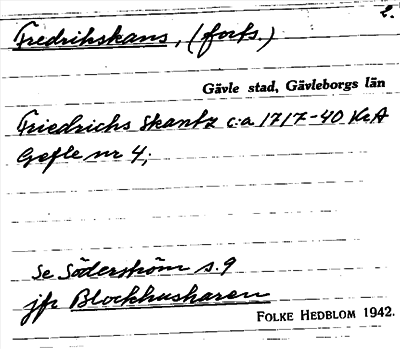 2.
Fredrikskans, (forts)
Gävle stad, Gävleborgs län
Friedrichs Skantz c:a 1717-40 KrA
Gefle nr 4;
Se Söderström s. 9
jfr Blockhusharen
FOLKE HEDBLOM 1942.